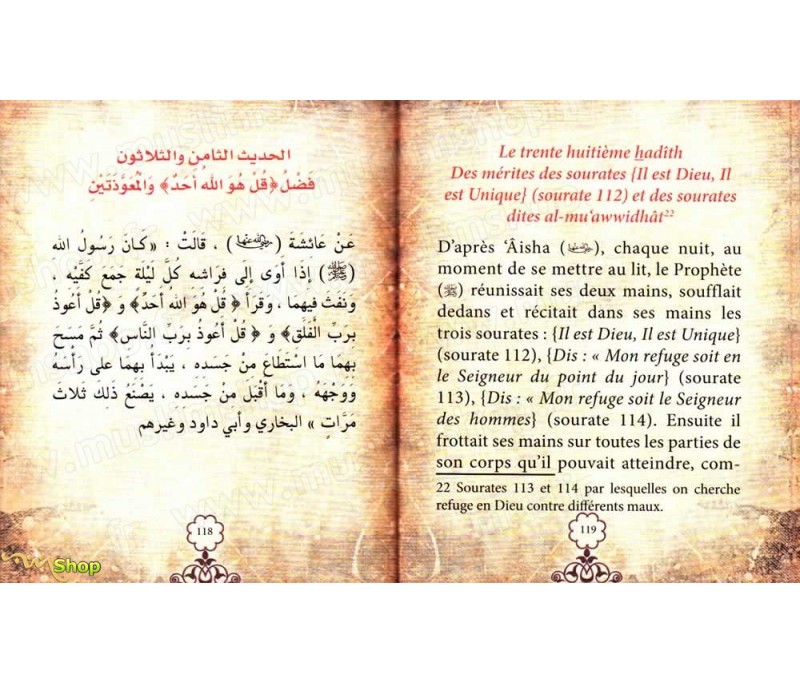 الحديث الثامن والثلاثون
فَضْلُ ﴿قُلْ هُوَ اللهُ أَحَدٌ﴾ وَالْمُعَوَّذَتَيْنِ
عَنْ عَائشَةَ (رضي الله عنها) ، قَالَتْ : «كَانَ رَسُولُ الله
(ﷺ) إذَا أوَى إلى فرَاشه كُلَّ لَيْلَة جَمَعَ كَفَّيْه ،
ونَفَثَ فيهمَا ، وقَرَأَ ﴿ قُلْ هُوَ اللهُ أحَدٌ﴾ وَ ﴿قُلْ أعُوذُ
برَبِّ الْفَلَق﴾ وَ ﴿ قُلْ أعُوذُ برَبِّ النَّاس﴾ ثُمَّ مَسَحَ
بهمَا مَا اسْتَطَاعَ منْ جَسَده ، يَبْدَأُ بهمَا على رَأْسه
وَوَجْهه ، وَمَا أقْبَلَ منْ جَسَده ، يَصْنَعُ ذَلكَ ثَلاثَ
مَرَّاتٍ » البخاري وأبي داود وغيرهم
118
Le trente huitième hadîth
Des mérites des sourates {Il est Dieu, Il
est Unique} (sourate 112) et des sourates
dites al-mu‘awwidhât22
D’après ‘Âisha (رضي الله عنها), chaque nuit, au
moment de se mettre au lit, le Prophète
(ﷺ) réunissait ses deux mains, soufflait
dedans et récitait dans ses mains les
trois sourates : {Il est Dieu, Il est Unique}
(sourate 112), {Dis : « Mon refuge soit en
le Seigneur du point du jour} (sourate
113), {Dis : « Mon refuge soit le Seigneur
des hommes} (sourate 114). Ensuite il
frottait ses mains sur toutes les parties de
son corps qu’il pouvait atteindre, com-
22 Sourates 113 et 114 par lesquelles on cherche
refuge en Dieu contre différents maux.
119
Shop